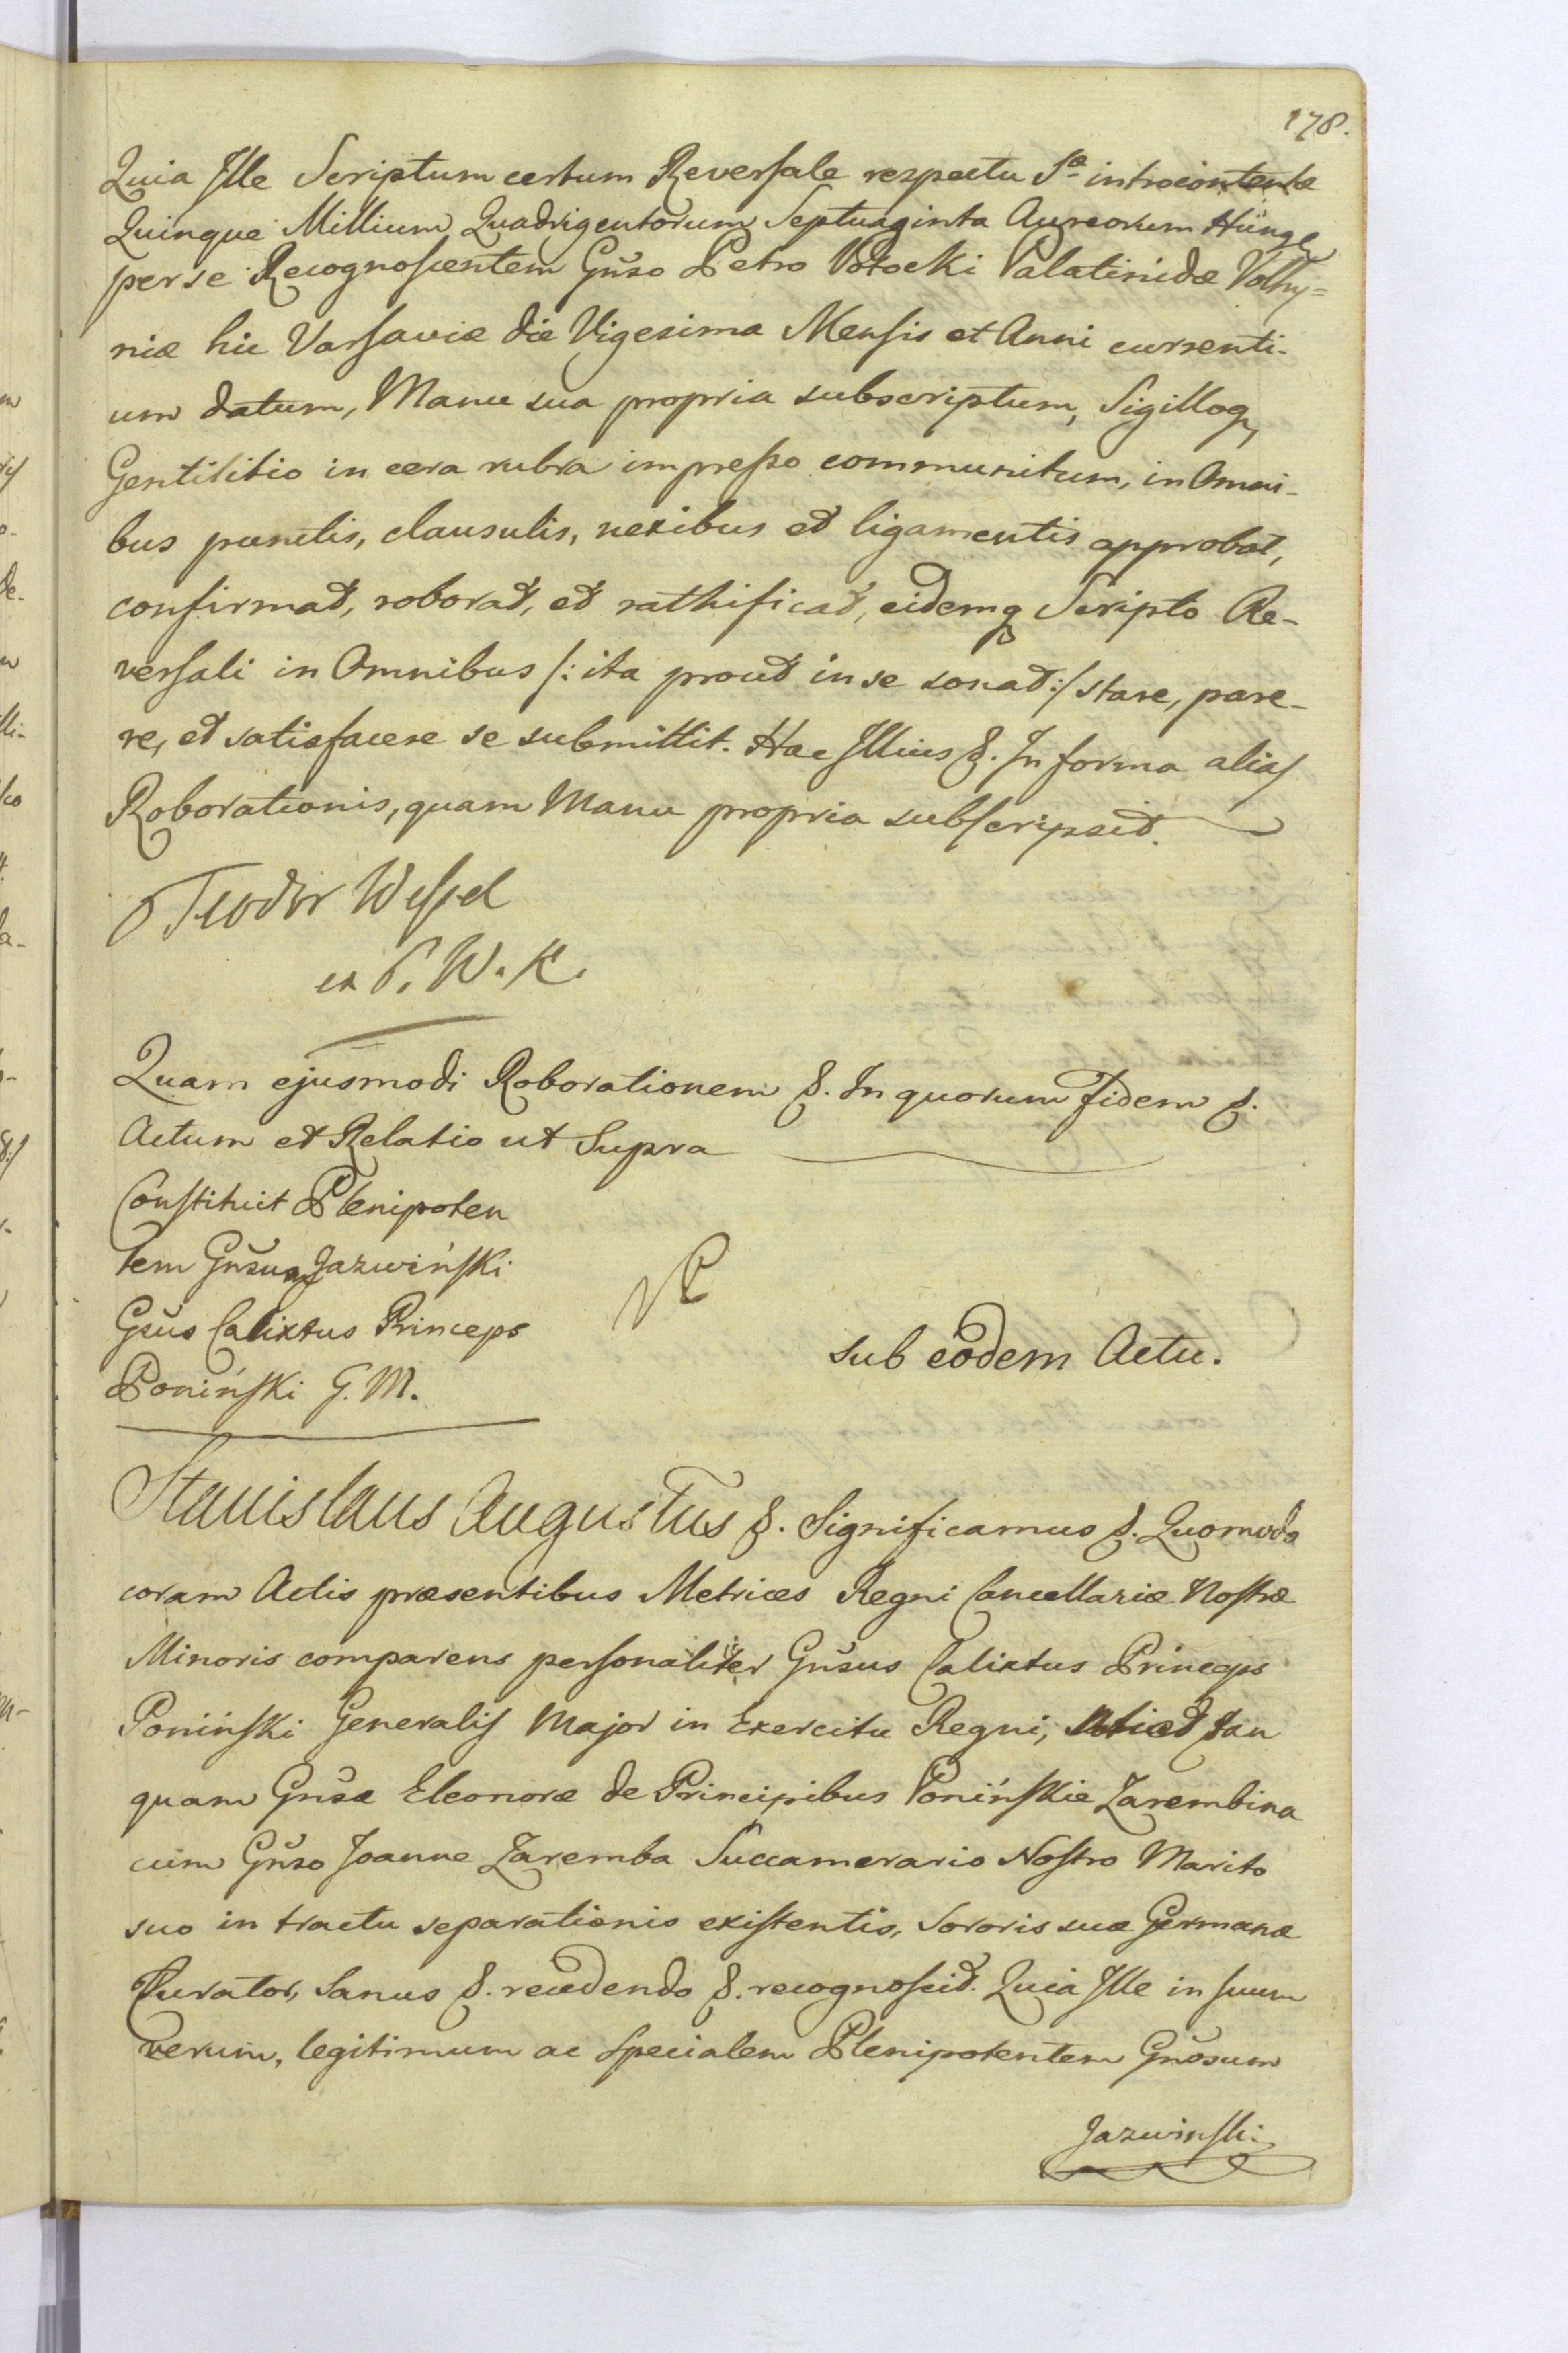 178.
Quia Ille Scriptum certum Reversale respectu Sæ introcontentæ
Quinque Millium Quadrigentorum Septuaginta Aureorum Hung
per se Recognoscentem Gnŝo Petro Potocki Palatinidæ Volhy=
niæ hic Varsaviæ die Vigesima Mensis et Anni currenti-
um datum, Manu sua propria subscriptum, Sigilloq
Gentilitio in cera rubra impresso communitum, in Omni-
bus punctis, clausulis, nexibus et ligamentis approbat,
confirmat, roborat, et rathificat, eidemq Scripto Re-
versali in Omnibus /: ita prout in se sonat :/ stare, pare-
re, et satisfacere se submittit. Hac Illius &. In forma alias
Roborationis, quam Manu propria subscripsit.
Teodor Wessel
ex P. W. K.
Quam ejusmodi Roborationem &. In quorum Fidem &.
Actum et Relatio ut Supra
Constituit Plenipoten
tem Gnŝus Jazwiński
Gnŝus Calixtus Princeps
Poniński G. M.
sub eodem Actu.
Stanislaus Augustus &. Significamus &. Quomodo
coram Actis præsentibus Metrices Regni Cancellariæ Nostræ
Minoris comparens personaliter Gnŝus Calixtus Princeps
Poniński Generalis Major in Exercitu Regni, tan
quam Gnŝæ Eleonoræ de Principibus Ponińskie Zarembina
cum Gnŝo Joanne Zaremba Succamerario Nostro Marito
suo in tractu separationis existentis, Sororis suæ Germanæ
Curator, Sanus &. recedendo &. recognoscit. Quia Ille in suum
verum, legitimum ac specialem Plenipotentem Gnŏsum
Jazwinski